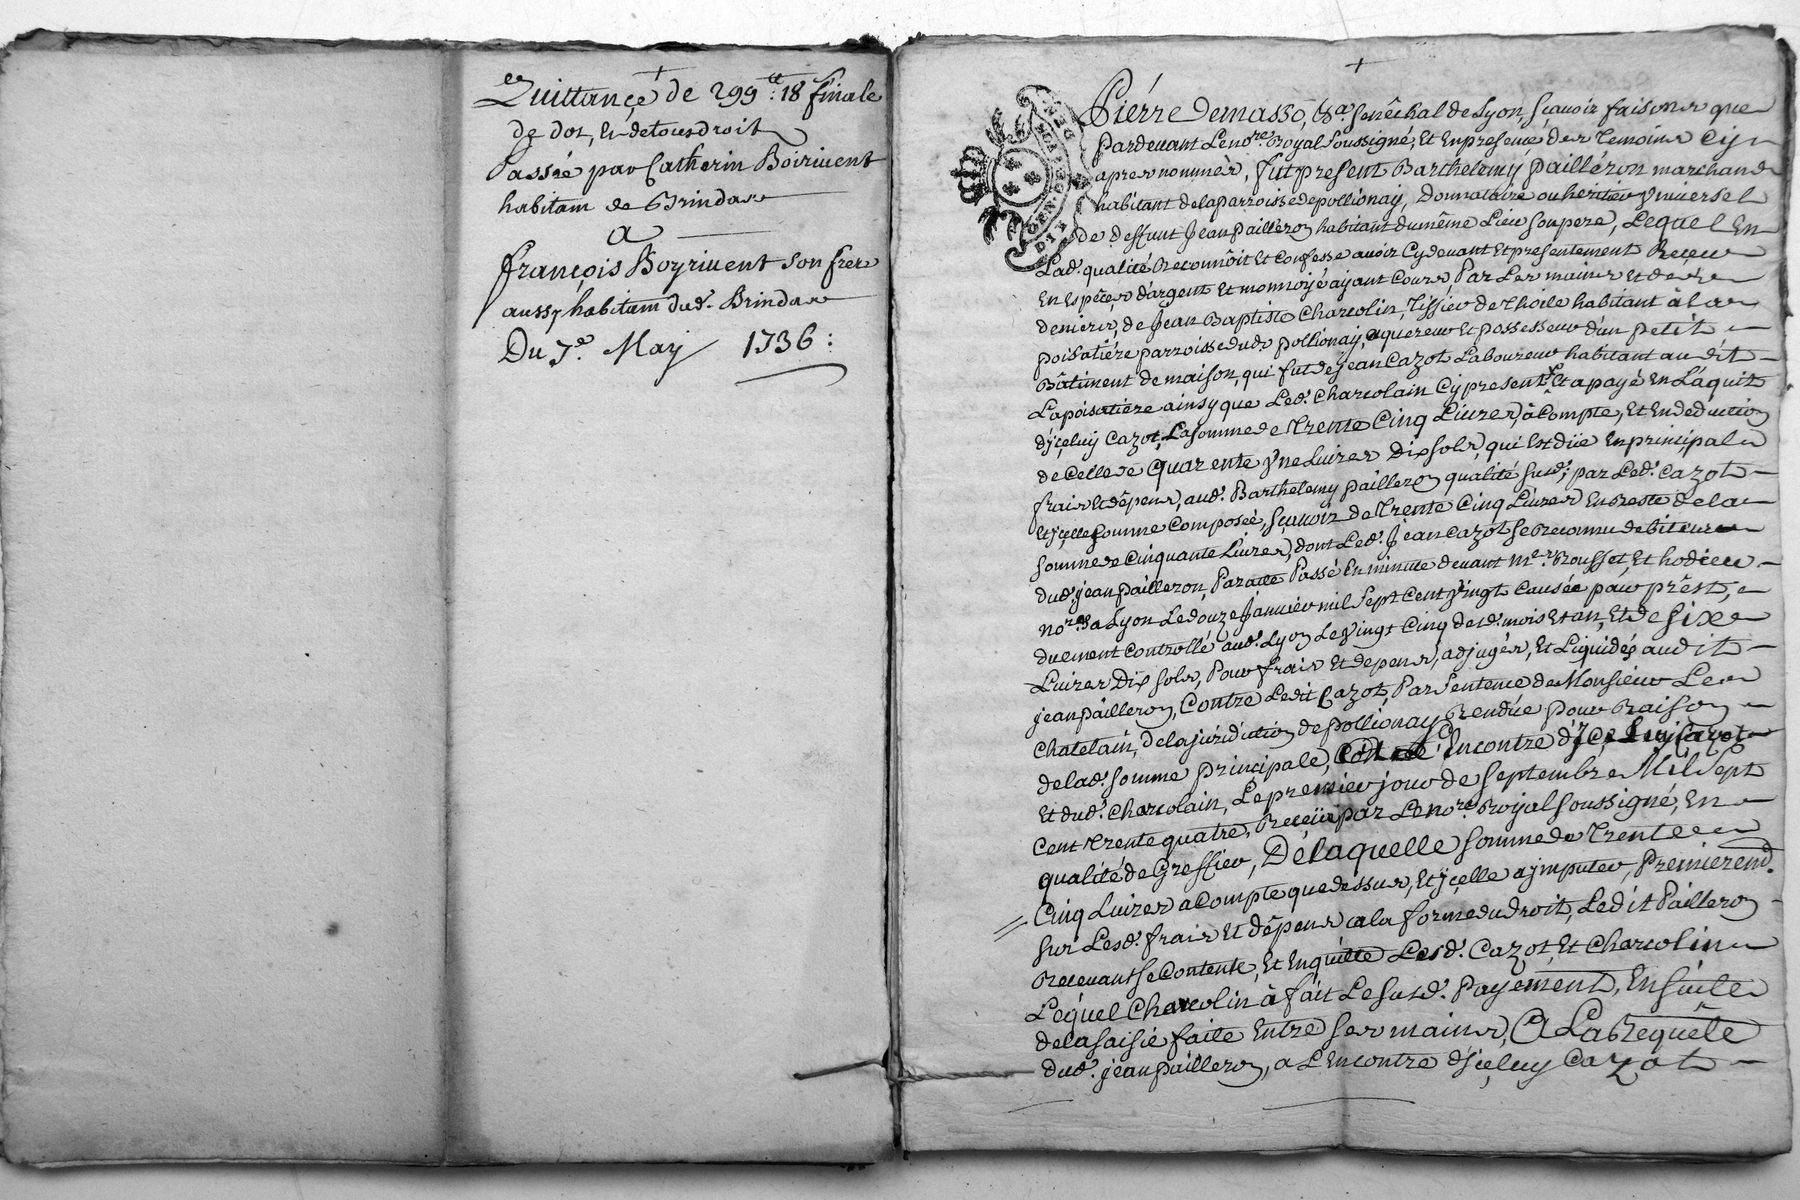 +
Quittançe de 299tt: 18 finale
de dot, et de tous droit
Passée par Catherin Boirivent
habitam de Brindas
A
françois Boyrivent son frere
aussy habitam dud. Brindas
Du 7e. May 1736:
+
Piérre Demasso, &a. senêchal de Lyon, sçavoir faisons que
Pardevant Le nore. Royal soussigné, Et En presence des temoins cy
apres nommés, fut present Barthelemy Pailléron marchand
habitant de la parroisse de pollionay, Donnataire ou heritier Vniversel
de deffunt Jean Pailleron habitant du même Lieu son pere, Lequel En
Lad. qualité Reconnoit Et Confesse avoir Cy devant Et presentement Receu
En Espêces d'argent Et monnoyé ayant Cours, Par Les mains Et
deniers, de Jean Baptiste Charcolin, Tissier de Thoile habitant à la
poisatiére parroisse dud. pollionay, aquereur Et possesseur d'un petit
Bâtiment de maison, qui fut de jean Cazot Laboureur habitant au dit
Lapoisatiere ainsy que Led. Charcolain Cy present Et a payé En L'aquit
d'jceluy Cazot, La somme de Trente Cinq Livres, à Compte, Et En deduction
de Celle de quarente Vne Livres Dix sols, qui Est düe En principal
frais Et dêpens, aud. Barthelemy Pailleron qualité susd; par Led. Cazot
Et jçelle somme Composée, sçavoir de Trente Cinq Livres En Reste de la
somme de Cinquante Livres, dont Led. Jean Cazot se Reconnu debiteur
dud. jean Pailleron, Par acte Passé En minute devant Mes. Rousset, Et hodieu
nores. a Lyon Le douze Janvier mil sept cent Vingt causée pour prêst,
duement Controllé aud. Lyon Le Vingt Cinq desd. mois Et an, Et de six
Livres Dix sols, Pour frais Et depens, adjugés, Et Liquidés audit
jean pailleron, Contre Ledit Cazot, Par sentence de Monsieur Le
Chatelain, de la juridiction de pollionay Rendüe pour Raison
de lad. somme principale, à L'Encontre d'jceluy Cazot
Et dud. Charcolain, Le premier jour de septembre Mil sept
Cent trente quatre, Reçeüe par Le nore. Royal soussigné, En
qualité de Greffier, De laquelle somme de Trente
Cinq Livres a Compte que dessus, Et jçelle a jmputer, Premierend.
sur Lesd. frais Et dêpens a la forme du droit, Ledit Pailleron
Recevant se Contente, Et En quitte Lesd. Cazot, Et Charcolin
Lequel Charcolin à fait Le susd. Payement, En suitte
de la saisie faite Entre ses mains, A La Requête
dud. jean Pailleron, a L'Encontre d'jçeluy Cazot